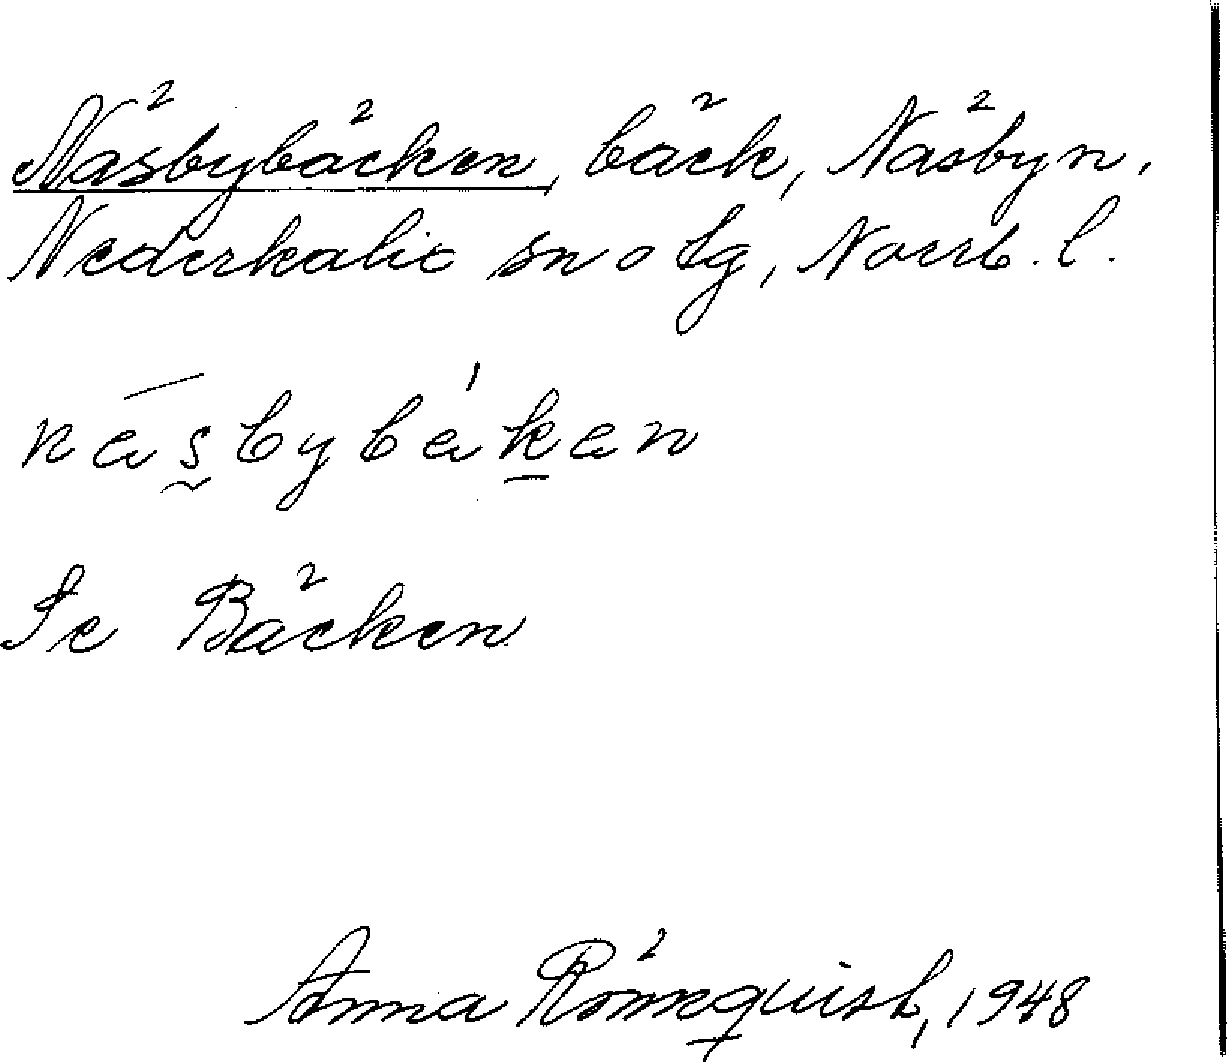 Näsbybäcken, bäck, Näsbyn.
Nederkalix sn o tg, Norrb. l.
näsbybäkan
Se Bäcken
Anna Rönnquist, 1948